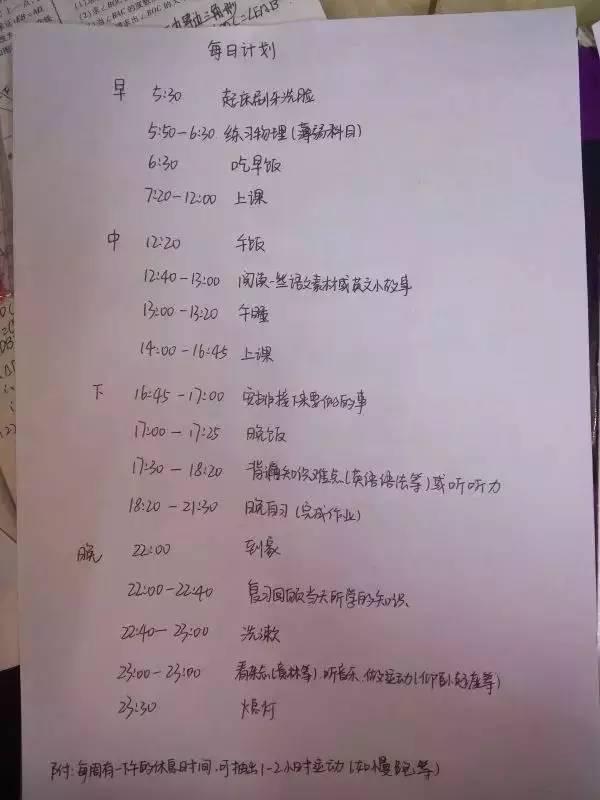 每日计划
早 5:30 起床刷牙洗脸
5:50-6:30 练习物理(薄弱科目)
6:30 吃早饭
7:20-12:00 上课
中 12:20 午饭
12:40-13:00 阅读一些语文素材或英文小故事
13:00-13:20 午睡
14:00-16:45 上课
下 16:45-17:00 安排接下来要做的事
17:00-17:25 晚饭
17:30-18:20 背诵知识难点(英语语法等)或听听力
18:20-21:30 晚自习(完成作业)
晚 22:00 到家
22:00-22:40 复习回顾当天所学的知识
22:40-23:00 洗漱
23:00-23:00 看杂志(意林等).听音乐.做运动(仰卧起座等)
23:30 熄灯
附:每周有一下午的休息日时间,可抽出1-2小时运动(如慢跑等)